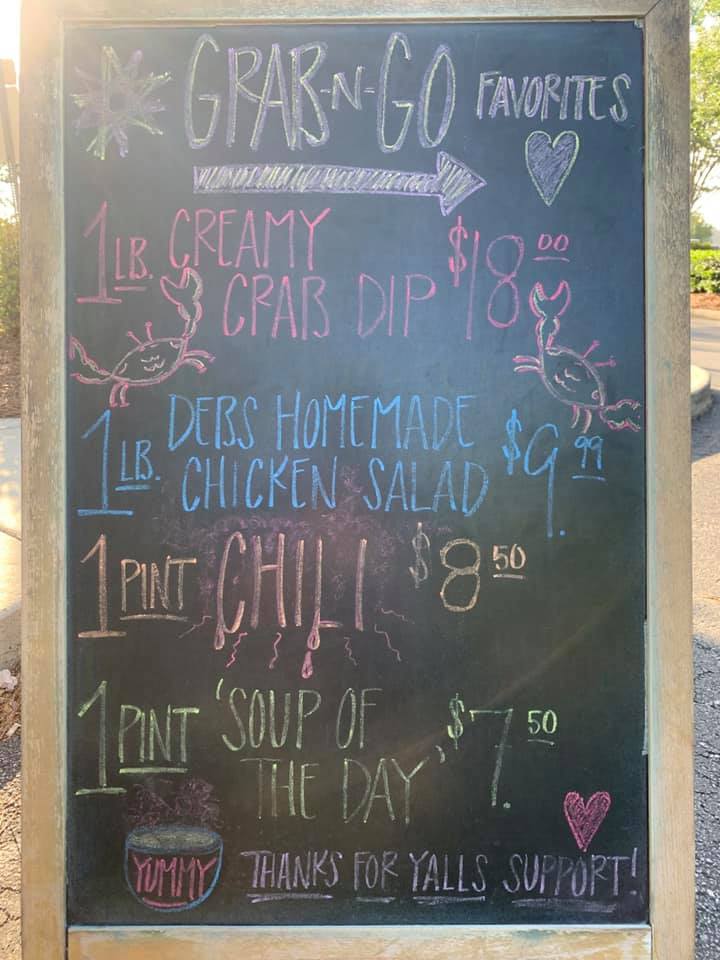 GRAB-N-GO FAVORITES
1 LB. CREAMY
CRAB DIP $18 00
1 LB. DEBS HOMEMADE
CHICKEN SALAD $9. 99
1 PINT CHILI $8 50
1 PINT 'SOUP OF
THE DAY' $7. 50
YUMMY THANKS FOR YALLS SUPPORT!